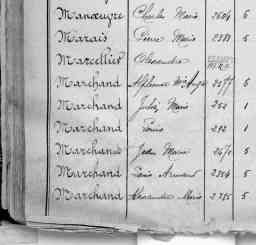 Manoeuvre Charles Marie 2604 5
Marais Pierre Marie 2388 5
Marcellier Alexandre
Marchand Alphonse 5
Marchand Jules Marie 252 1
Marchand Louis 292 1
Marchand Jean Marie 5
Marchand Louis Armand 2504 5
Marchand Alexandre Marie 2795 5